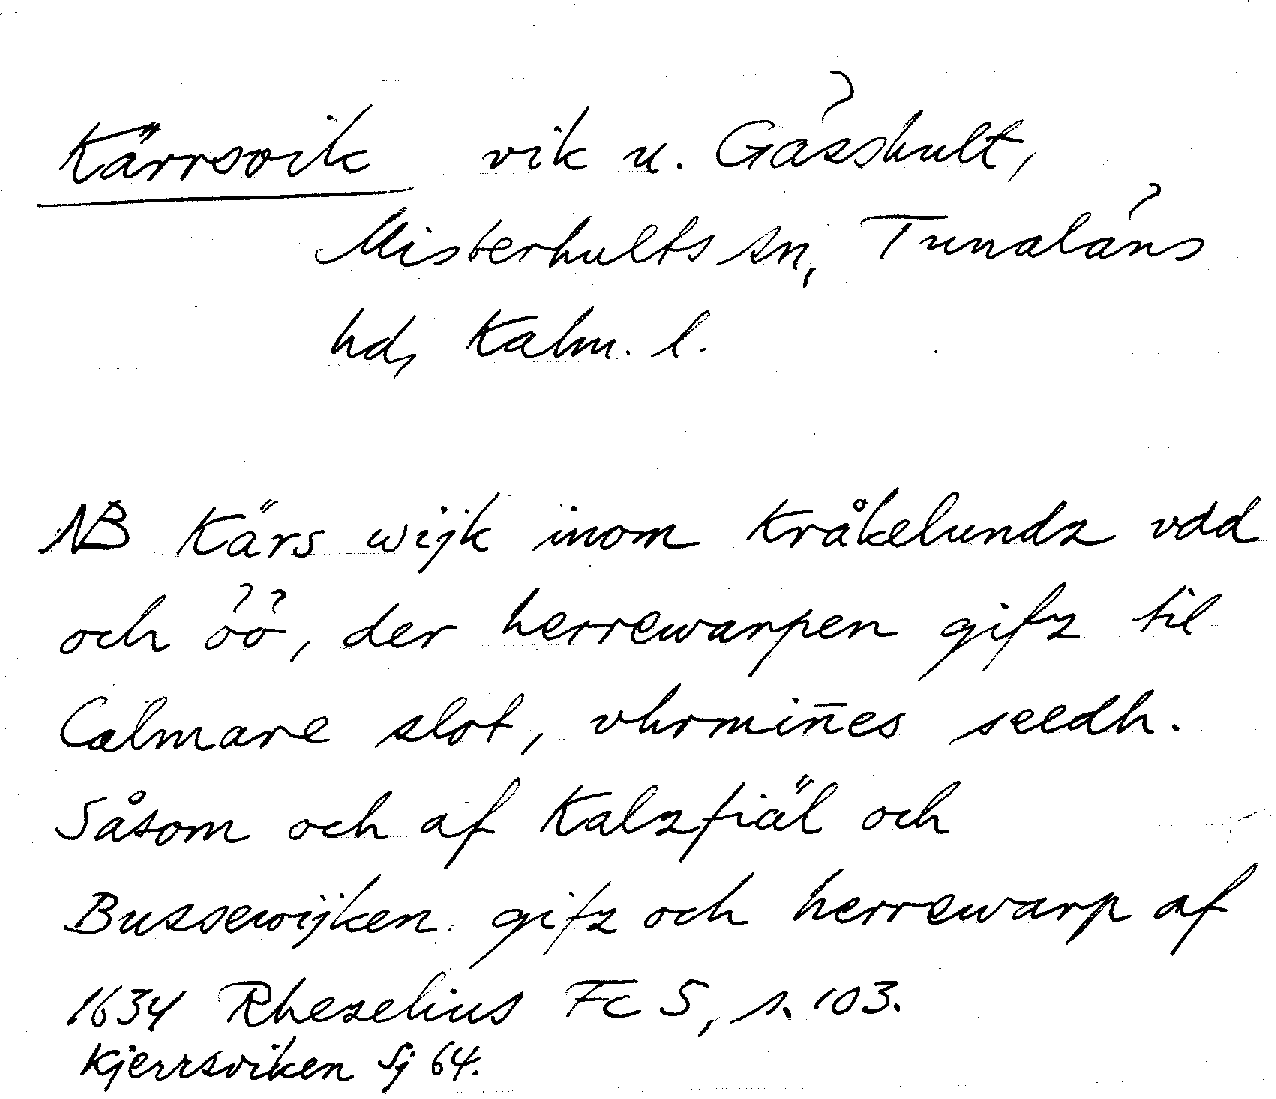 Kärrsvik vik u. Gåsshult,
Misterhults sn, Tunaläns
hd, Kalm. l.
NB Kärs wijk inom Kråkelundz vdd
och öö, der herrewarpen gifz til
Calmare slot, vhrmiñes seedh.
Såsom och af Kalzfiäl och
Bussewijken gifz och herrewarp af
1634 Rhezelius Fc 5, s. 103.
Kjerrsviken Sj 64.